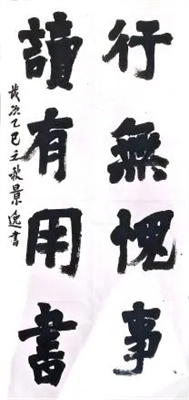 行無愧事
讀有用書
歲次乙巳立秋景逸書